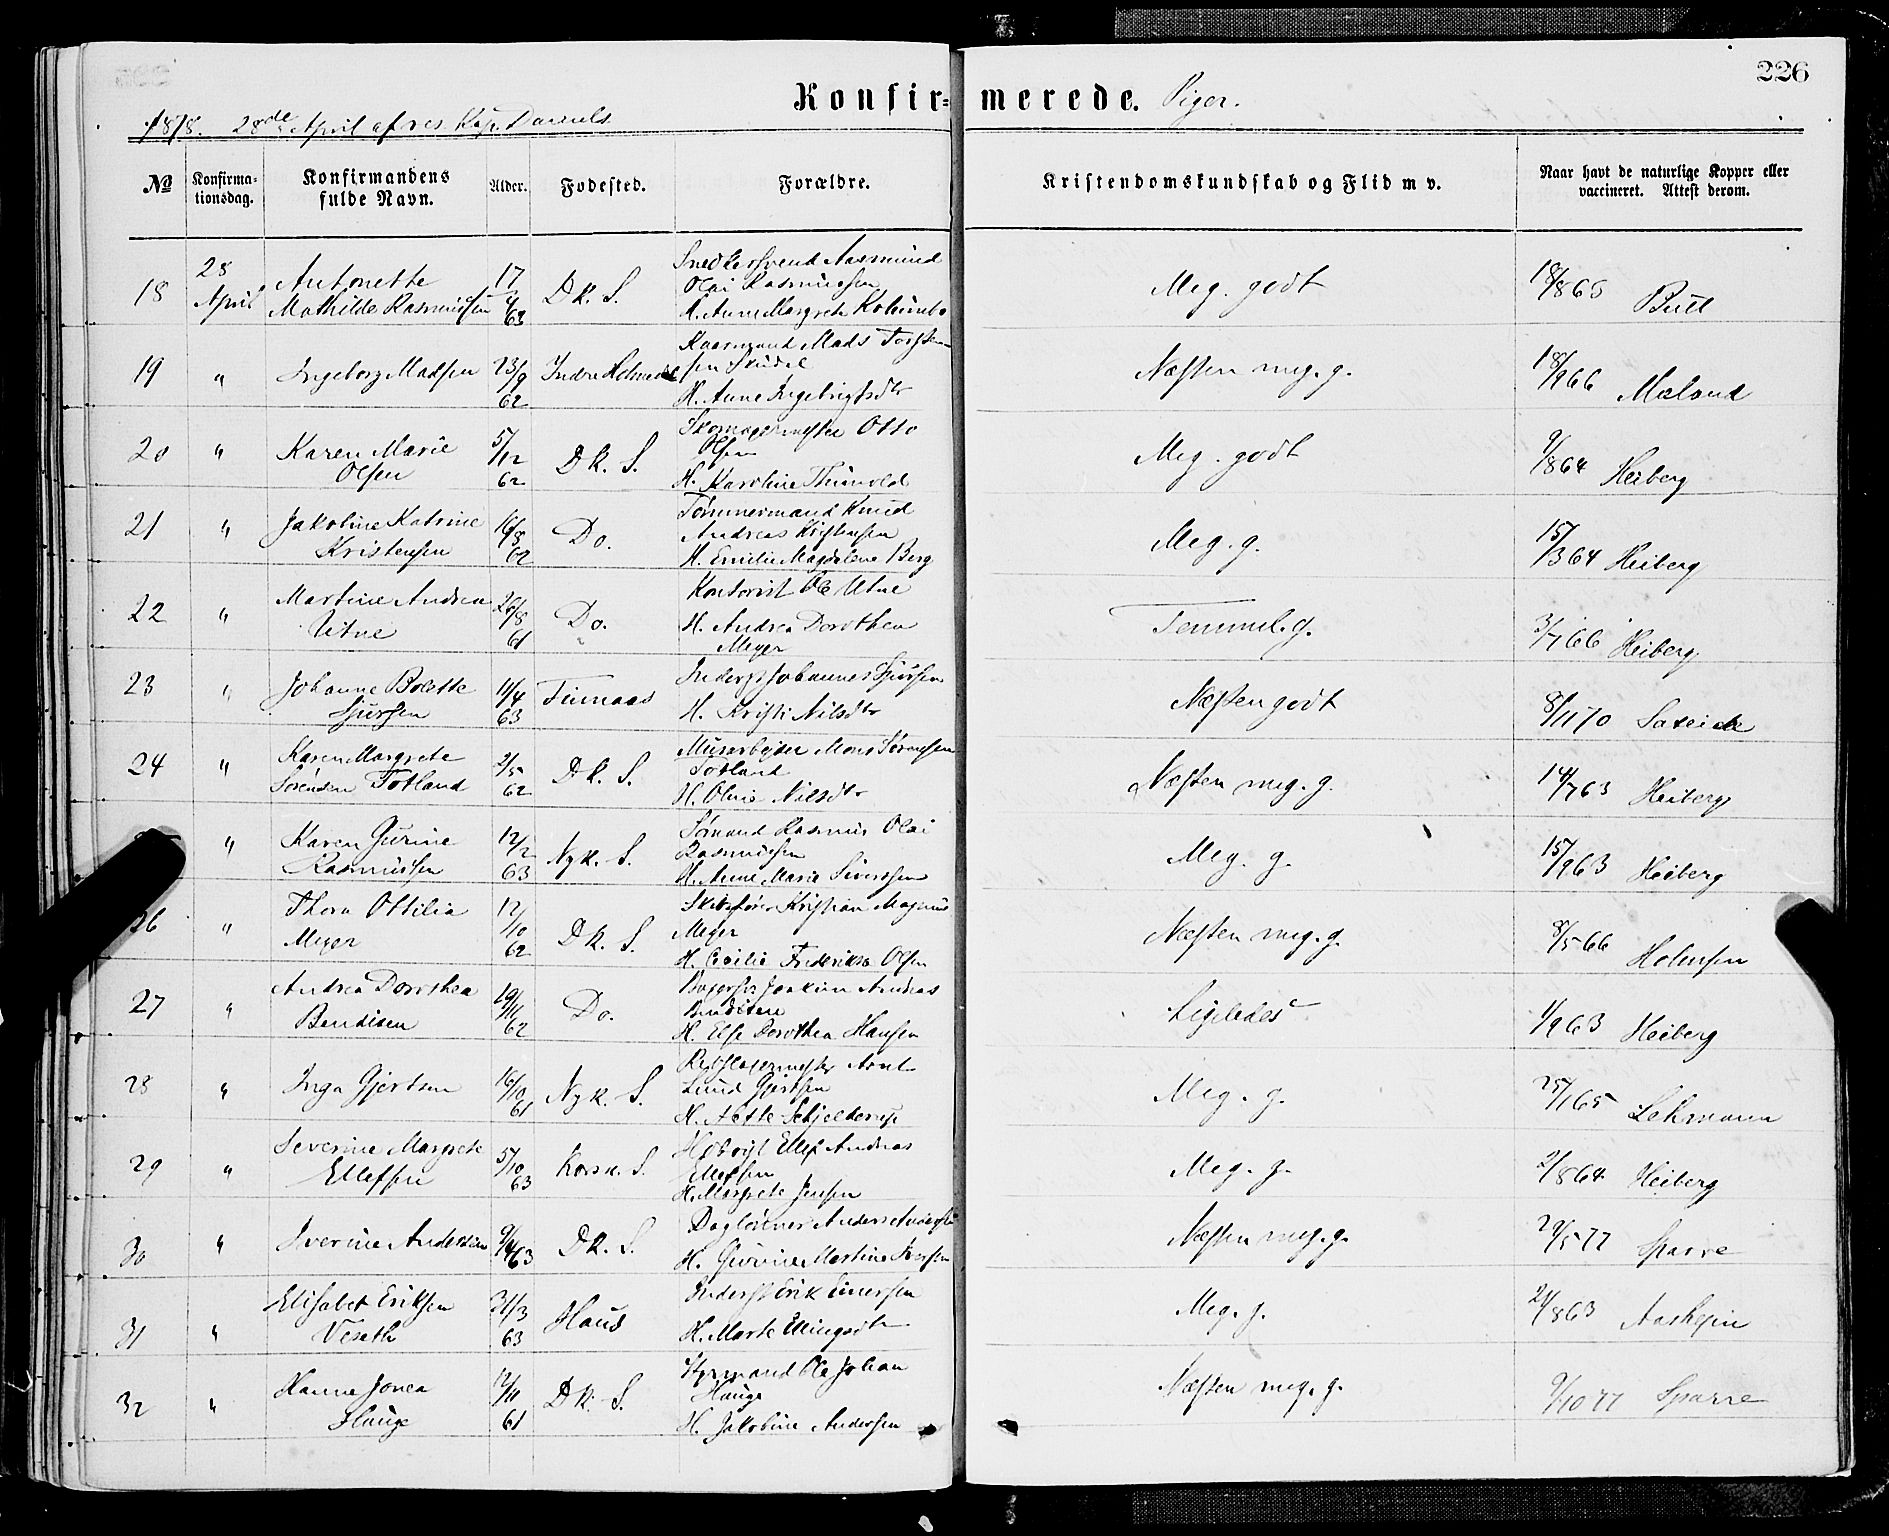 226
Konfirmerede. Piger.
1878. 28de April af res. Kap. Daniels
№
Konfirmationsdag.
Konfirmandens fulde Navn.
Alder.
Fødested.
Forældre.
Kristendomskundskab og Flid m v.
Naar havt de naturlige Kopper eller vaccineret. Attest derom.
18 28 April Antonette Mathilde Rasmussen 17/4 63 Dk. S. Snedkersvend Rasmus Olai Rasmussen H. Anne Margrete Meg. godt 18/8 65 Bull
19 " Ingeborg Madsen 23/9 62 Indre Mads H. Anne Ingebrigtsdtr Næsten meg. g. 18/9 66 Maland
20 " Karen Marie Olsen 5/12 62 Dk. S. Skomagermester Otto Olsen H. Karoline Meg. godt 9/8 64 Heiberg
21 " Jakobine Katrine Kristensen 16/8 62 Do. Tømmermand Knud Andreas Kristensen H. Emilie Magdalene Berg Meg. g. 15/3 64 Heiberg
22 " Martine Andrea Utne 26/8 61 Do. Kontorist Ole Utne H. Andrea Dorothea Meyer Temmel. g. 3/7 66 Heiberg
23 " Johanne Bolette Sjursen 11/4 63 Finnaas Inderst Johannes Sjursen H. Kristi Nilsdtr Næsten godt 8/11 70
24 " Karen Margrete Sørensen Totland 2/5 62 Dk. S. Murarbejder Mons Sørensen Totland H. Oline Nilsdtr Næsten meg. g. 14/7 63 Heiberg
" Karen Gurine Rasmussen 12/2 63 Nyk. S. Sømand Rasmus Olai Rasmussen H. Anne Marie Sivertsen Meg. g. 15/9 63 Heiberg
26 " Thora Ottilia Meyer 12/10 62 Dk. S. Skibsfører Kristian Magnus Meyer H. Cecilie Frederikke Olsen Næsten meg. g. 8/5 66 Holmsen
27 " Andrea Dorothea Bendixen 19/11 62 Do. Joakim Andreas Bendixen H. Else Dorothea Hansen Ligeledes 1/9 63 Heiberg
28 " Inga Gjertsen 16/10 61 Nyk. S. Rebslagermester Arnt Lund Gjertsen H. Schjelderup Meg. g. 25/1 65 Lehmann
29 " Severine Margrete Ellefsen 5/10 63 Korsk. S. Ellef Andreas Ellefsen H. Margrete Jensen Meg. g. 2/8 64 Heiberg
30 " Iverine Andersen 9/4 63 Dk. S. Daglønner Anders Andersen H. Gurine Martine Iversen Næsten meg. g. 29/5 77 Sparre
31 " Elisabet Eriksen 31/3 63 Haus Inderst Erik Einersen H. Marte Ellingsdtr Meg. g. 21/8 63
32 " Hanne Jonea Hauge 12/11 61 Dk. S. Styrmand Ole Johan Hauge H. Jakobine Andersen Næsten meg. g. 9/10 77 Sparre